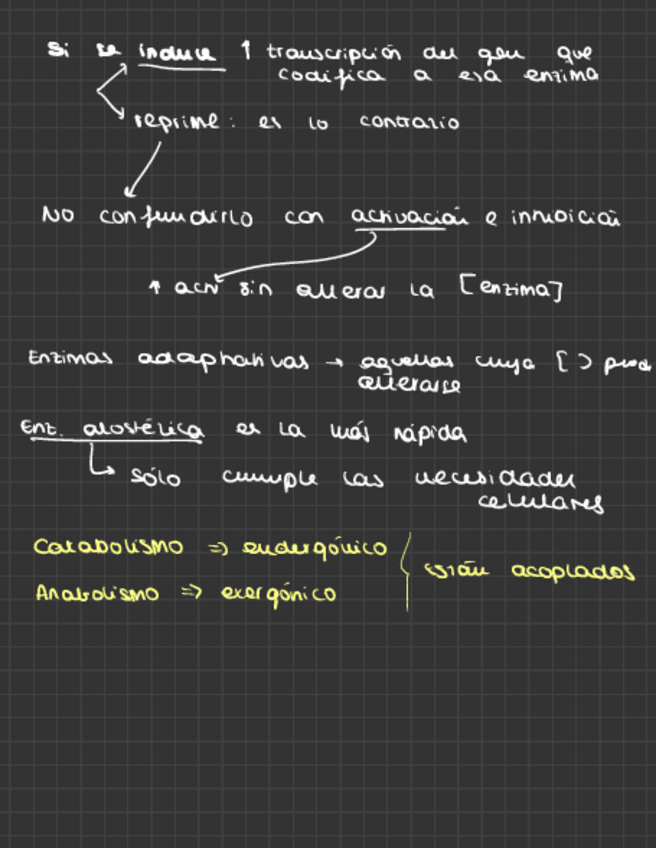 Si se induce ↑ transcripción del gen que
codifica a esa enzima
reprime: es lo contrario
No confundirlo con activación e inhibición
↑ actv sin alterar la [enzima]
Enzimas adaptativas → aquellas cuya [ ] puede
alterarse
Enz. alostérica es la más rápida
↳ sólo cumple las necesidades
celulares
Catabolismo => endergónico
Anabolismo => exergónico
están acoplados